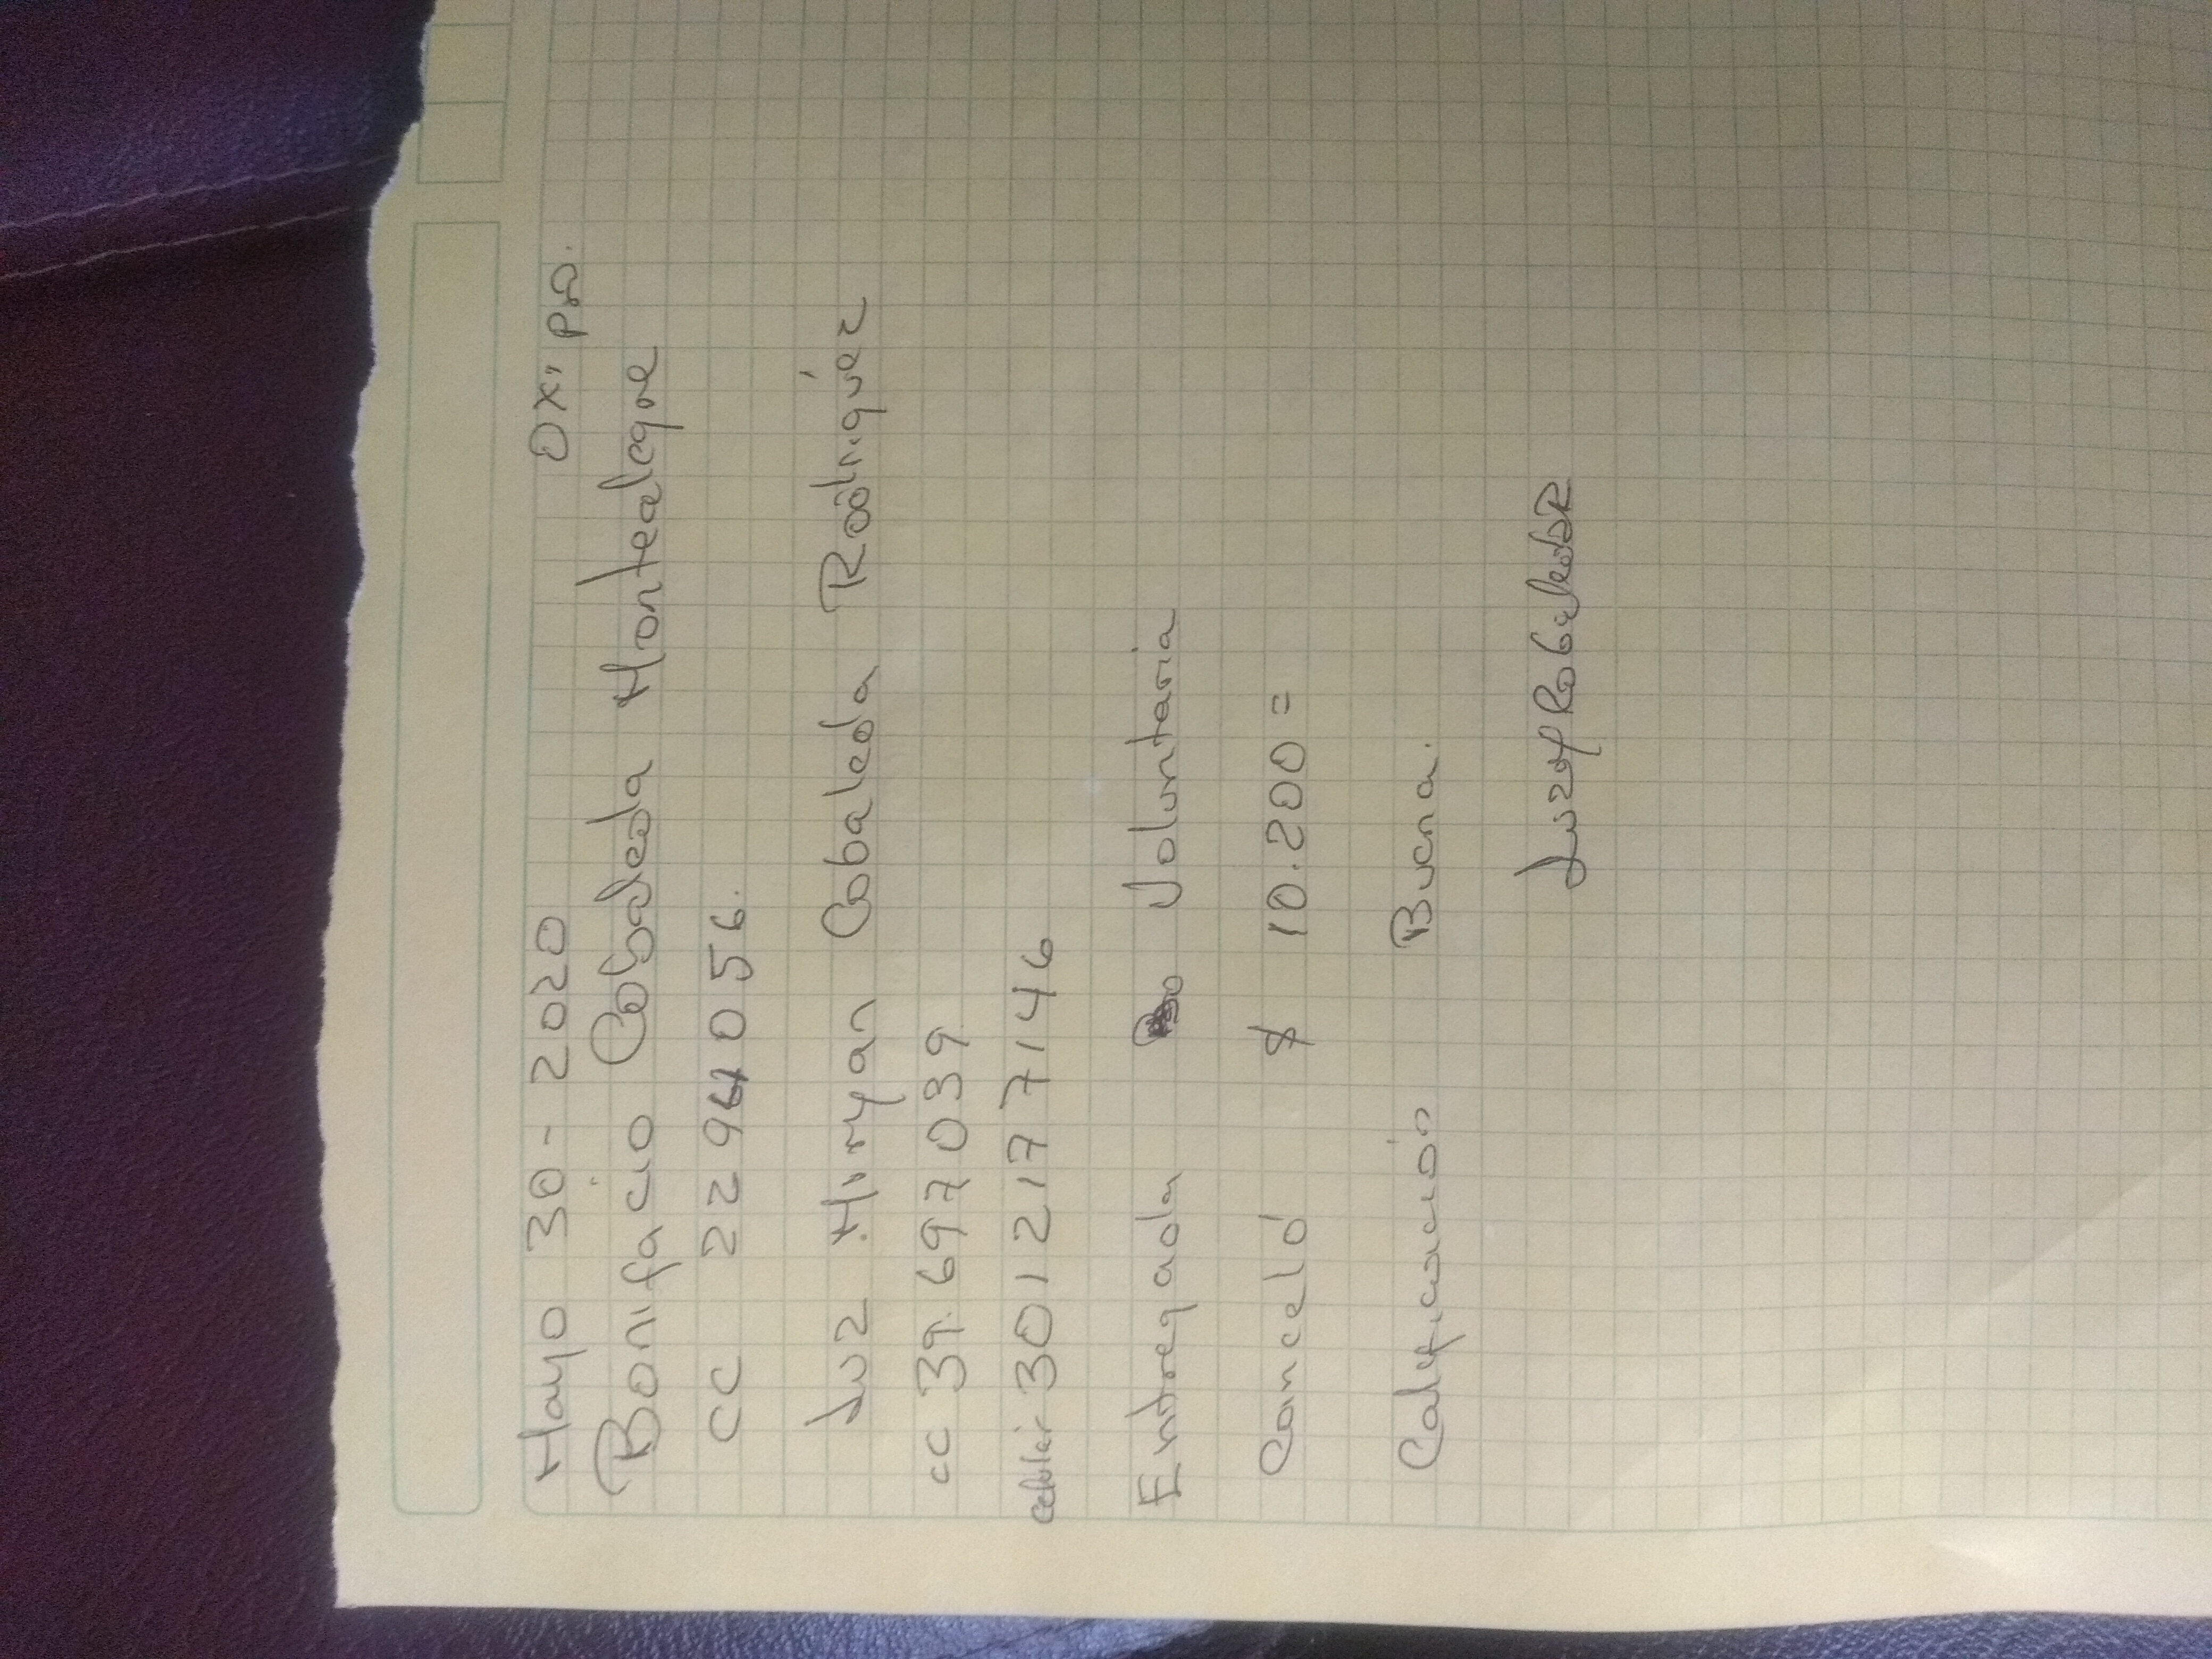 Mayo 30 - 2020 Oxipro.
Bonifacio Cobaleda Montealegre
CC 2294056.
Luz Miryan Cobaleda Rodriguez
CC 39.697039
celular 3012177146
Entregada Voluntaria
Canceló $ 10.200=
Calificación Buena.